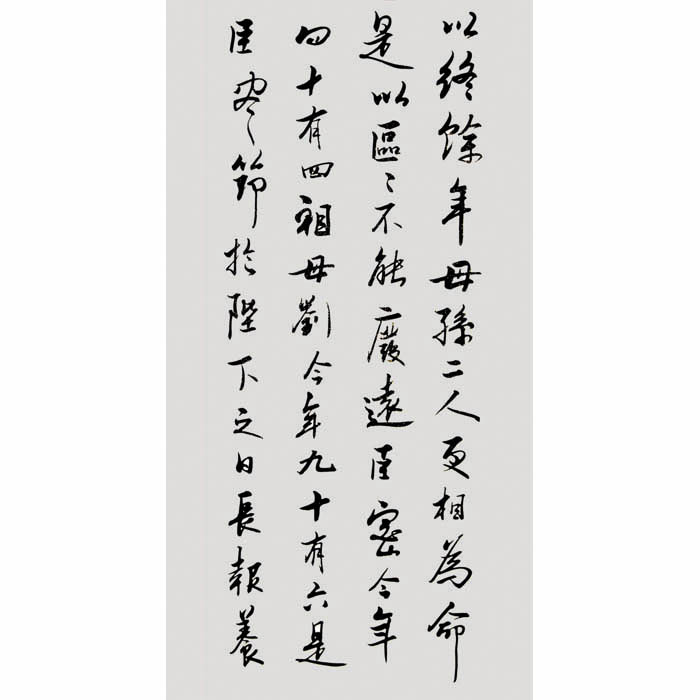 以終餘年母孫二人更相為命
是以區〻不能廢遠臣密今年
四十有四祖母劉今年九十有六是
臣盡節於陛下之日長報養